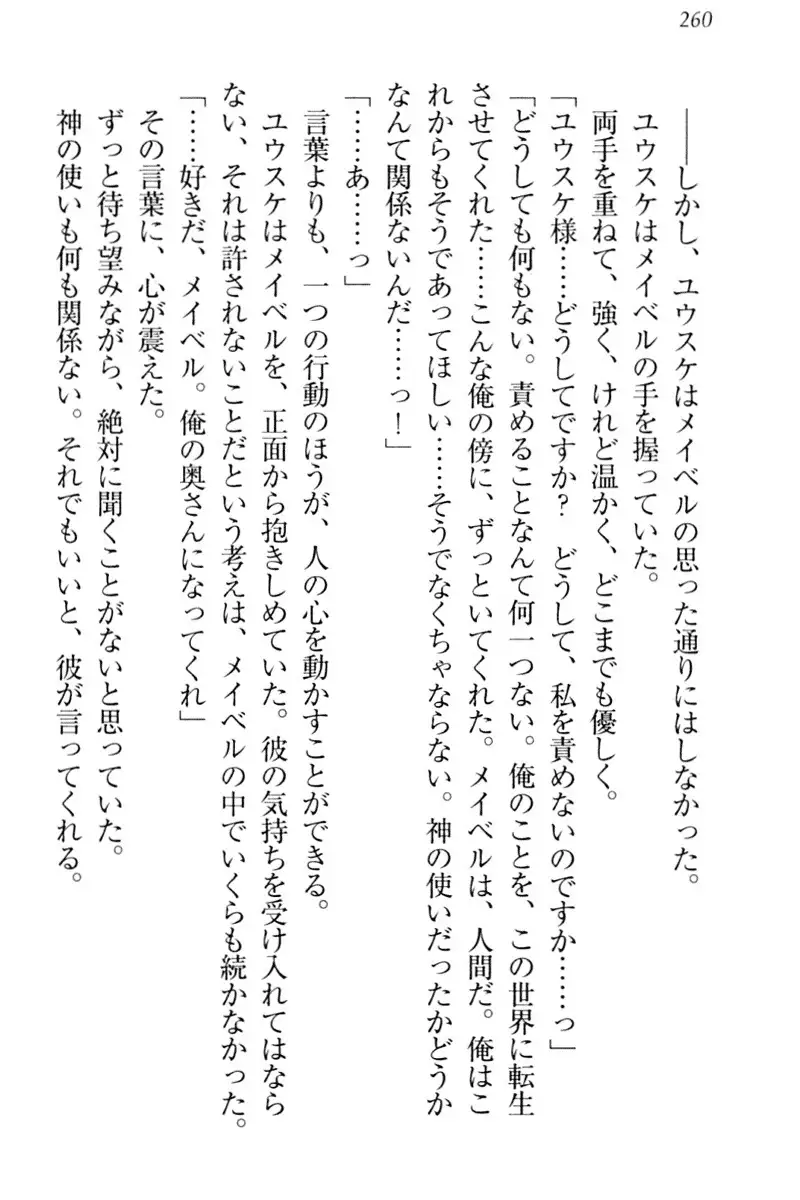 260
――しかし、ユウスケはメイベルの思った通りにはしなかった。
ユウスケはメイベルの手を握っていた。
両手を重ねて、強く、けれど温かく、どこまでも優しく。
「ユウスケ様……どうしてですか？　どうして、私を責めないのですか……っ」
「どうしても何もない。責めることなんて何一つない。俺のことを、この世界に転生
させてくれた……こんな俺の傍に、ずっといてくれた。メイベルは、人間だ。俺はこ
れからもそうであってほしい……そうでなくちゃならない。神の使いだったかどうか
なんて関係ないんだ……っ！」
「……あ……っ」
言葉よりも、一つの行動のほうが、人の心を動かすことができる。
ユウスケはメイベルを、正面から抱きしめていた。彼の気持ちを受け入れてはなら
ない、それは許されないことだという考えは、メイベルの中でいくらも続かなかった。
「……好きだ、メイベル。俺の奥さんになってくれ」
その言葉に、心が震えた。
ずっと待ち望みながら、絶対に聞くことがないと思っていた。
神の使いも何も関係ない。それでもいいと、彼が言ってくれる。